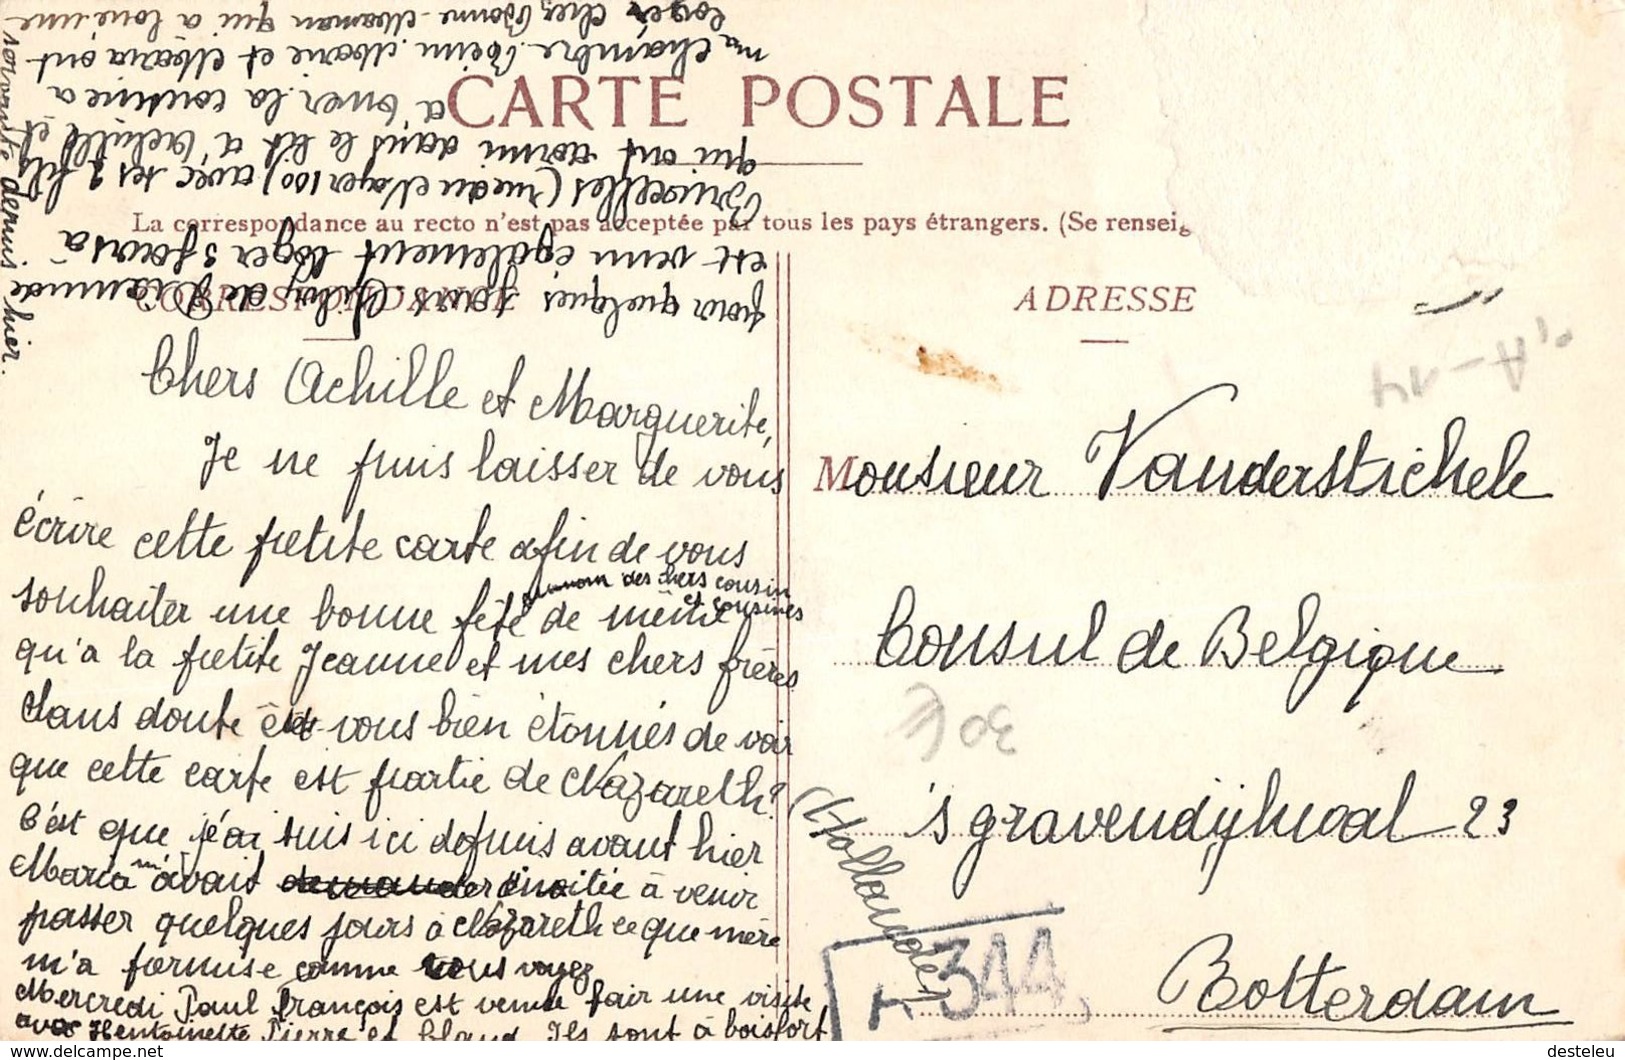 CARTE POSTALE
La correspondance au recto n'est pas acceptée par tous les pays étrangers. (Se renseig
CORRESPONDANCE
ADRESSE
Chers Achille et Marguerite,
Je ne puis laisser de vous
écrire cette petite carte afin de vous
souhaiter une bonne fête de même
au nom des chers cousin
et cousines
qu'a la petite Jeanne et mes chers frères
Sans doute êtes vous bien étonnés de voir
que cette carte est partie de Nazareth?
C'est que j'ai suis ici depuis avant hier
Maria m'avait invitée à venir
passer quelques jours à Nazareth ce que mère
m'a permise comme vous voyez
Mercredi Paul François est venue fair une visite
avec Hentoinette Pierre et Claud Ils sont à boisfort
pour quelques jours. de Dixmude
est venu également loger 3 jours à
Bruxelles (rue du Noyer 100) avec ses 2 fils
qui ont dormi dans le lit à Achille et
la cousine a
ma chambre. Marie et Maria ont
loger chez Bonne-Maman qui a loué une
servante depuis hier.
Monsieur Vanderstichele
Consul de Belgique
's gravendijkwal 23
(Hollande)
Rotterdam
30 €
T 344
desteleu